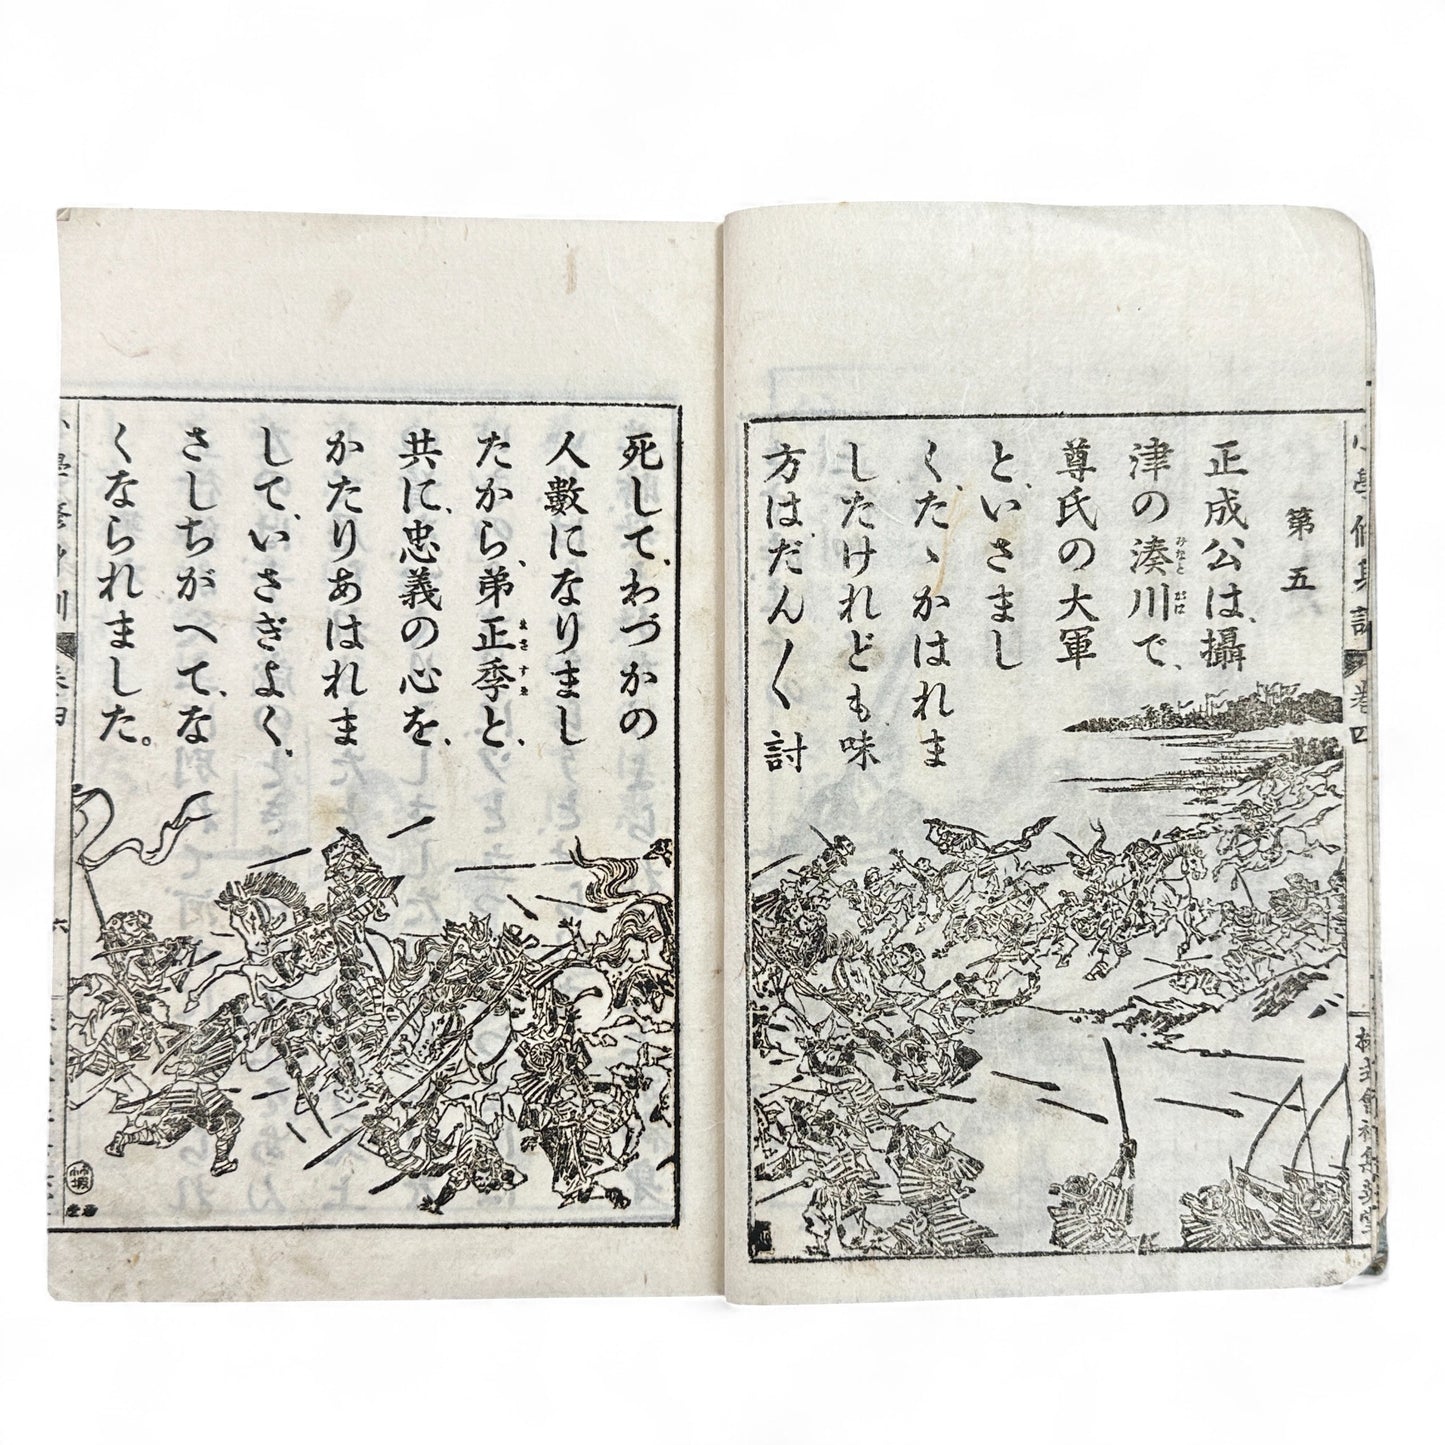 第五
正成公は、攝
津の湊川で、
みなと がは
尊氏の大軍
と、いさまし
く、たゝかはれま
したけれども味
方はだん〱討
死して、わづかの
人數になりまし
たから、弟正季と、
まさすゑ
共に、忠義の心を、
かたりあはれま
して、いさぎよく、
さしちがへて、な
くなられました。
小學修身訓 卷四